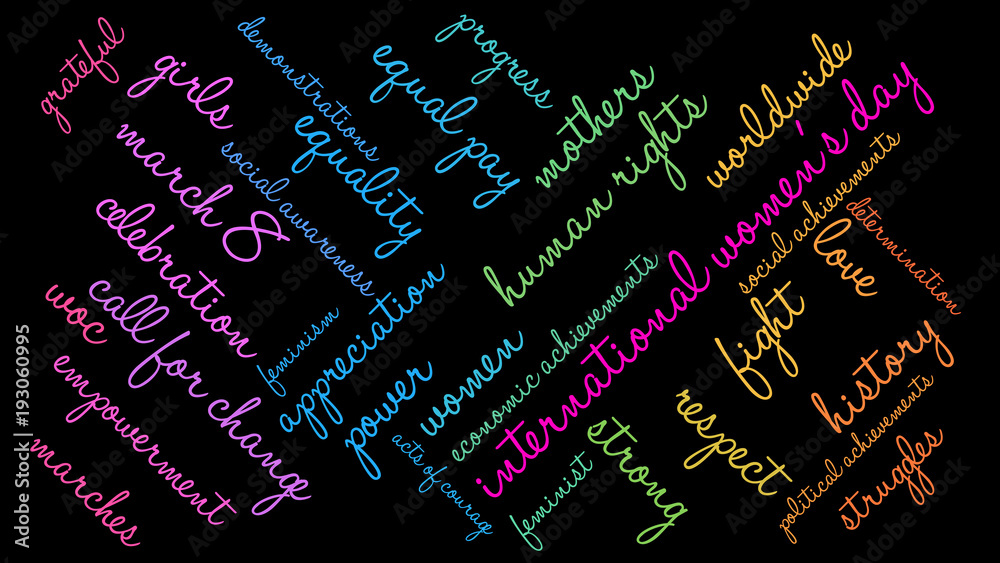 grateful
girls
demonstrations
equal pay
progress
mothers
human rights
worldwide
march 8
social awareness
equality
celebration
international women's day
social achievements
determination
love
call for change
woc
feminism
appreciation
power
women
economic achievements
fight
history
empowerment
marches
acts of courage
feminist
strong
respect
political achievements
struggles
Adobe Stock | #193060995
Adobe Stock